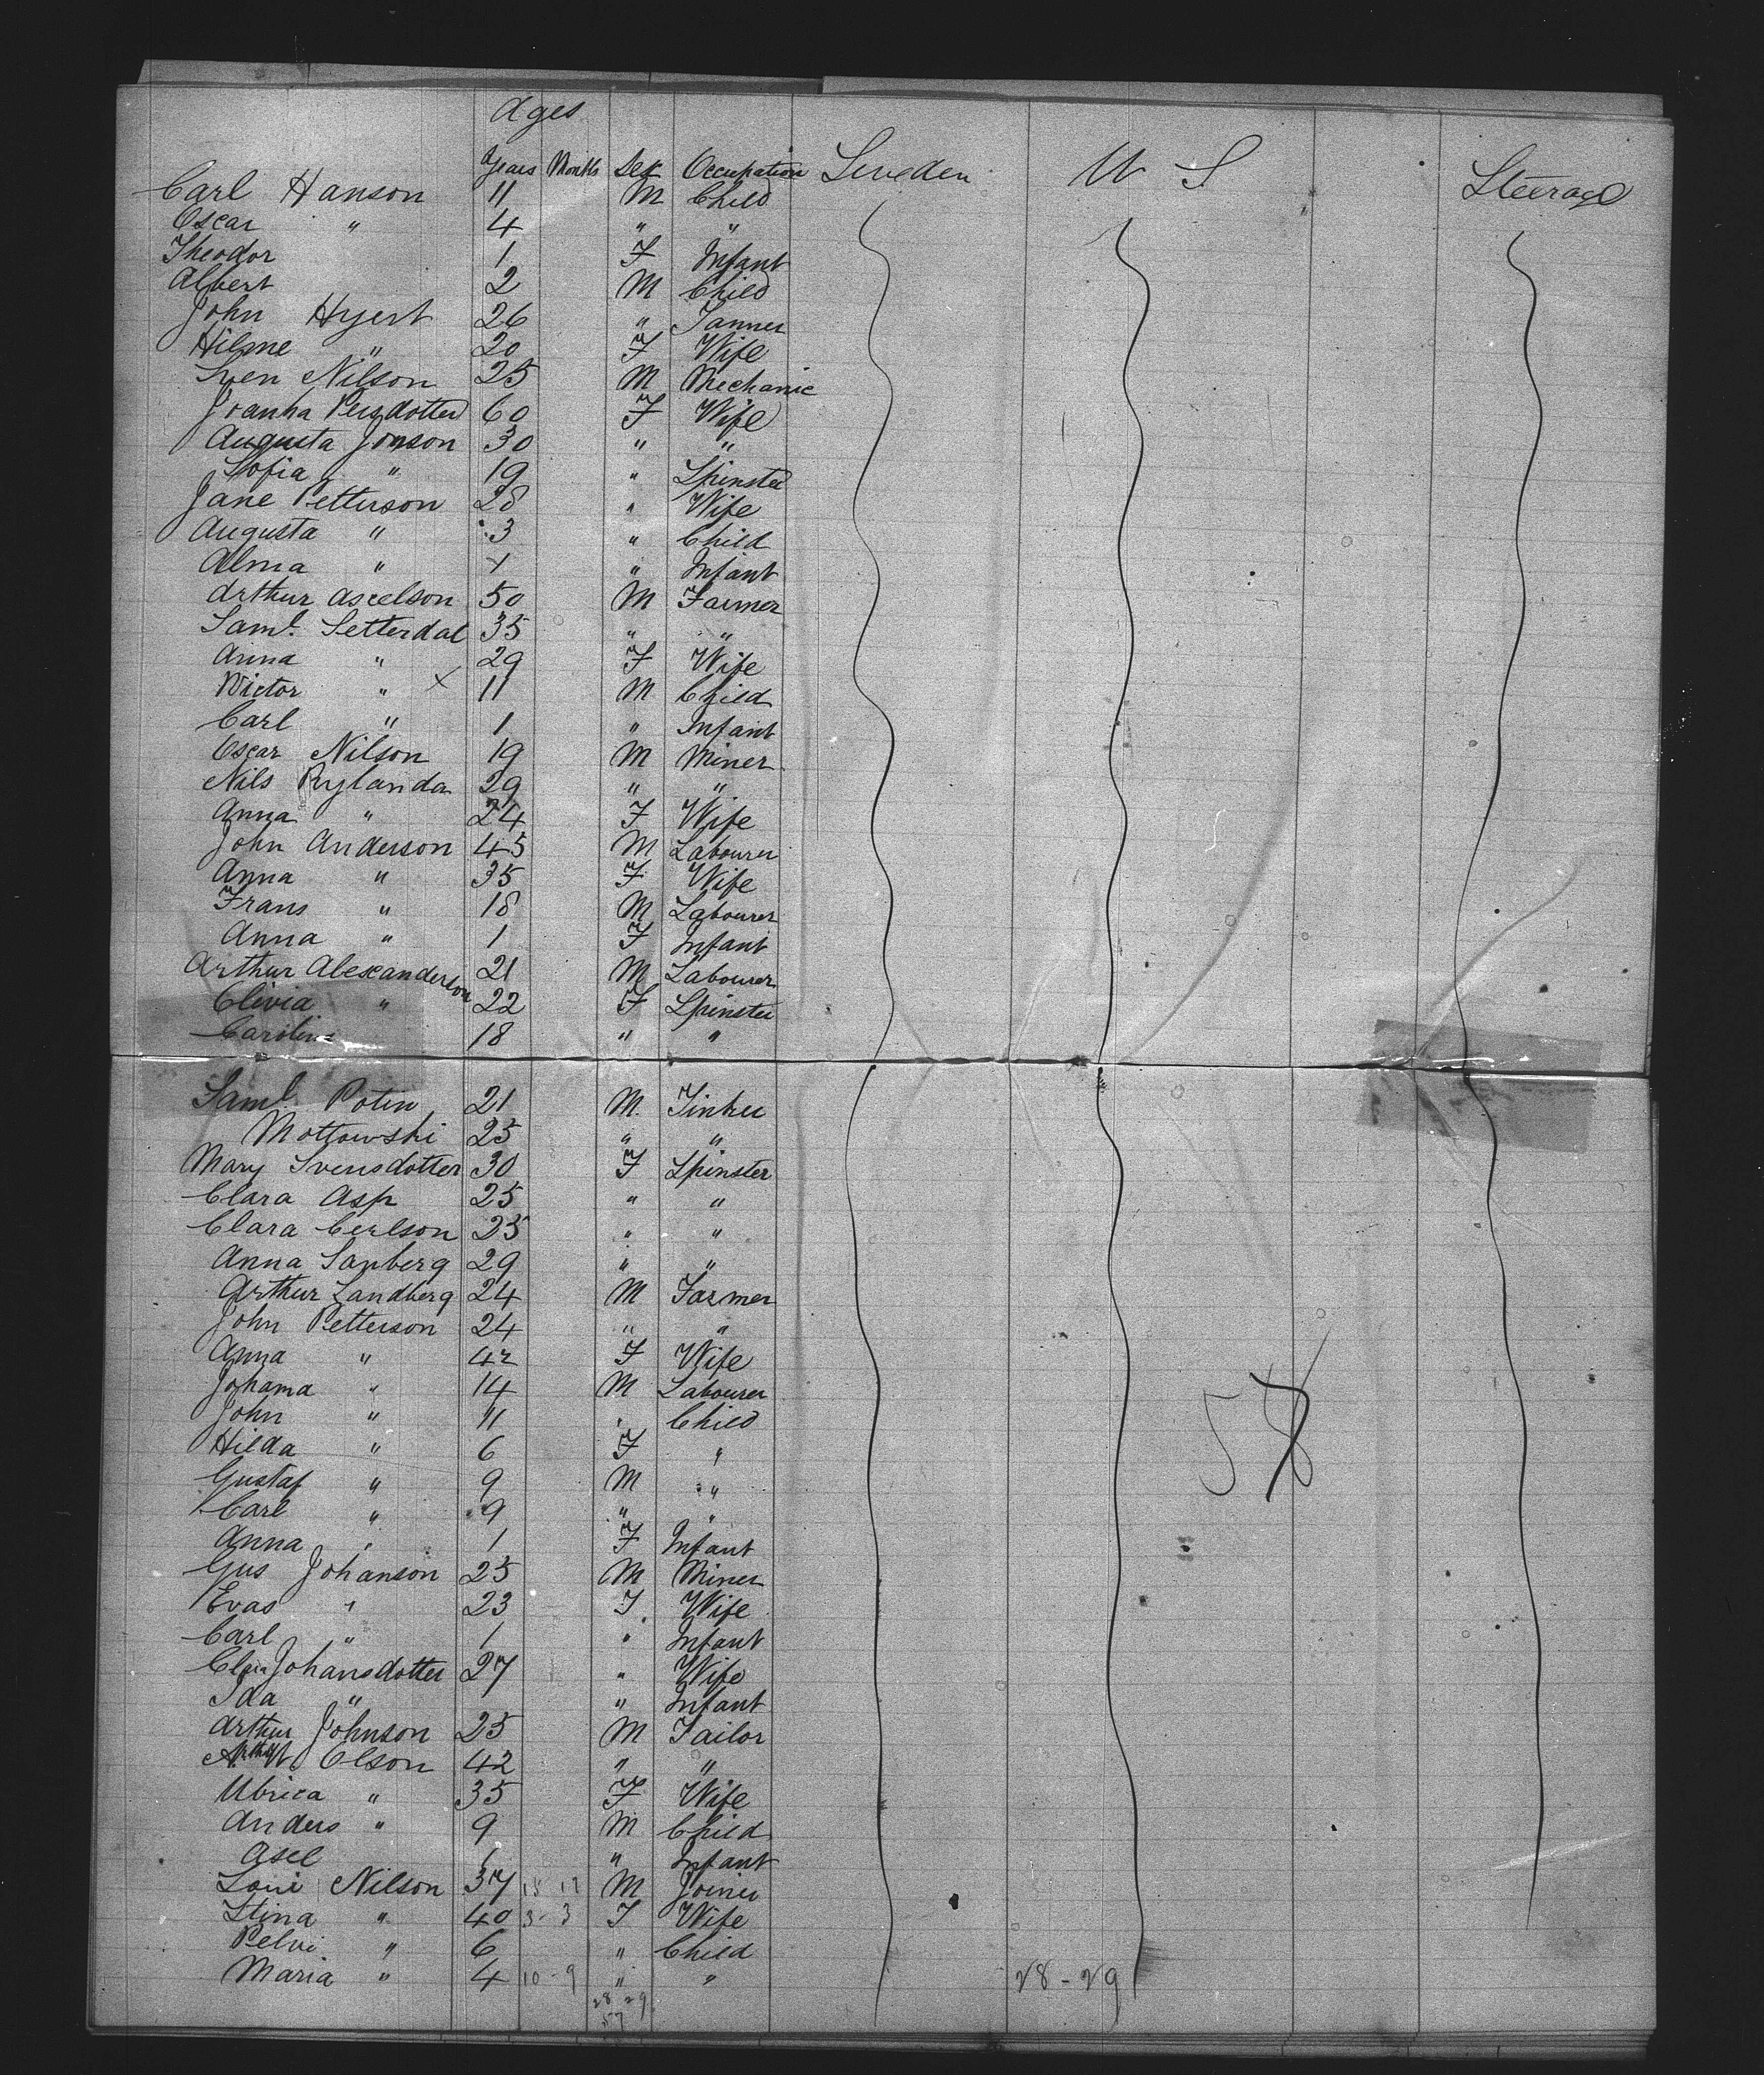 Ages
Years Months Sex Occupation Sweden U S Steerage
Carl Hanson 11 M Child
Oscar " 4 " "
Theodor 1 F Infant
Albert 2 M Child
John Hyert 26 " Tanner
Hilme " 20 F Wife
Sven Nilson 25 M Mechanic
Joanna Persdotter 60 F Wife
Augusta Jonson 30 " "
Sofia " 19 " Spinster
Jane Petterson 28 " Wife
Augusta " 3 " Child
Alma " 1 " Infant
Arthur Ascelson 50 M Farmer
Saml. Setterdal 35 " "
Anna " 29 F Wife
Wictor " x 11 M Child
Carl " 1 " Infant
Oscar Nilson 19 M Miner
Nils Rylanda 29 " "
Anna " 24 F Wife
John Anderson 45 M Labourer
Anna " 35 F Wife
Frans " 18 M Labourer
Anna " 1 F Infant
Arthur Alexanderson 21 M Labourer
Olivia " 22 F Spinster
Caroline 18 " "
Saml Potin 21 M Tinker
Mottowski 25 " "
Mary Svensdotter 30 F Spinster
Clara Asp 25 " "
Clara Cerlson 25 " "
Anna Sanberg 29 " "
Arthur Landberg 24 M Farmer
John Petterson 24 " "
Anna " 42 F Wife
Johama " 14 M Labourer
John " 11 " Child
Hilda " 6 F "
Gustaf " 9 M "
Carl " 9 " "
Anna " 1 F Infant
Gus Johanson 25 M Miner
Evas " 23 F Wife
Carl " 1 " Infant
Johansdotter 27 " Wife
Ida " " Infant
Arthur Johnson 25 M Tailor
Olson 42 " "
Ubrica " 35 F Wife
Anders " 9 M Child
Asel 1 " Infant
Nilson 37 M Joiner
Stina " 40 3-3 F Wife
Pelvi " 6 " Child
Maria " 4 10-9 " "
28 29 28-29
57